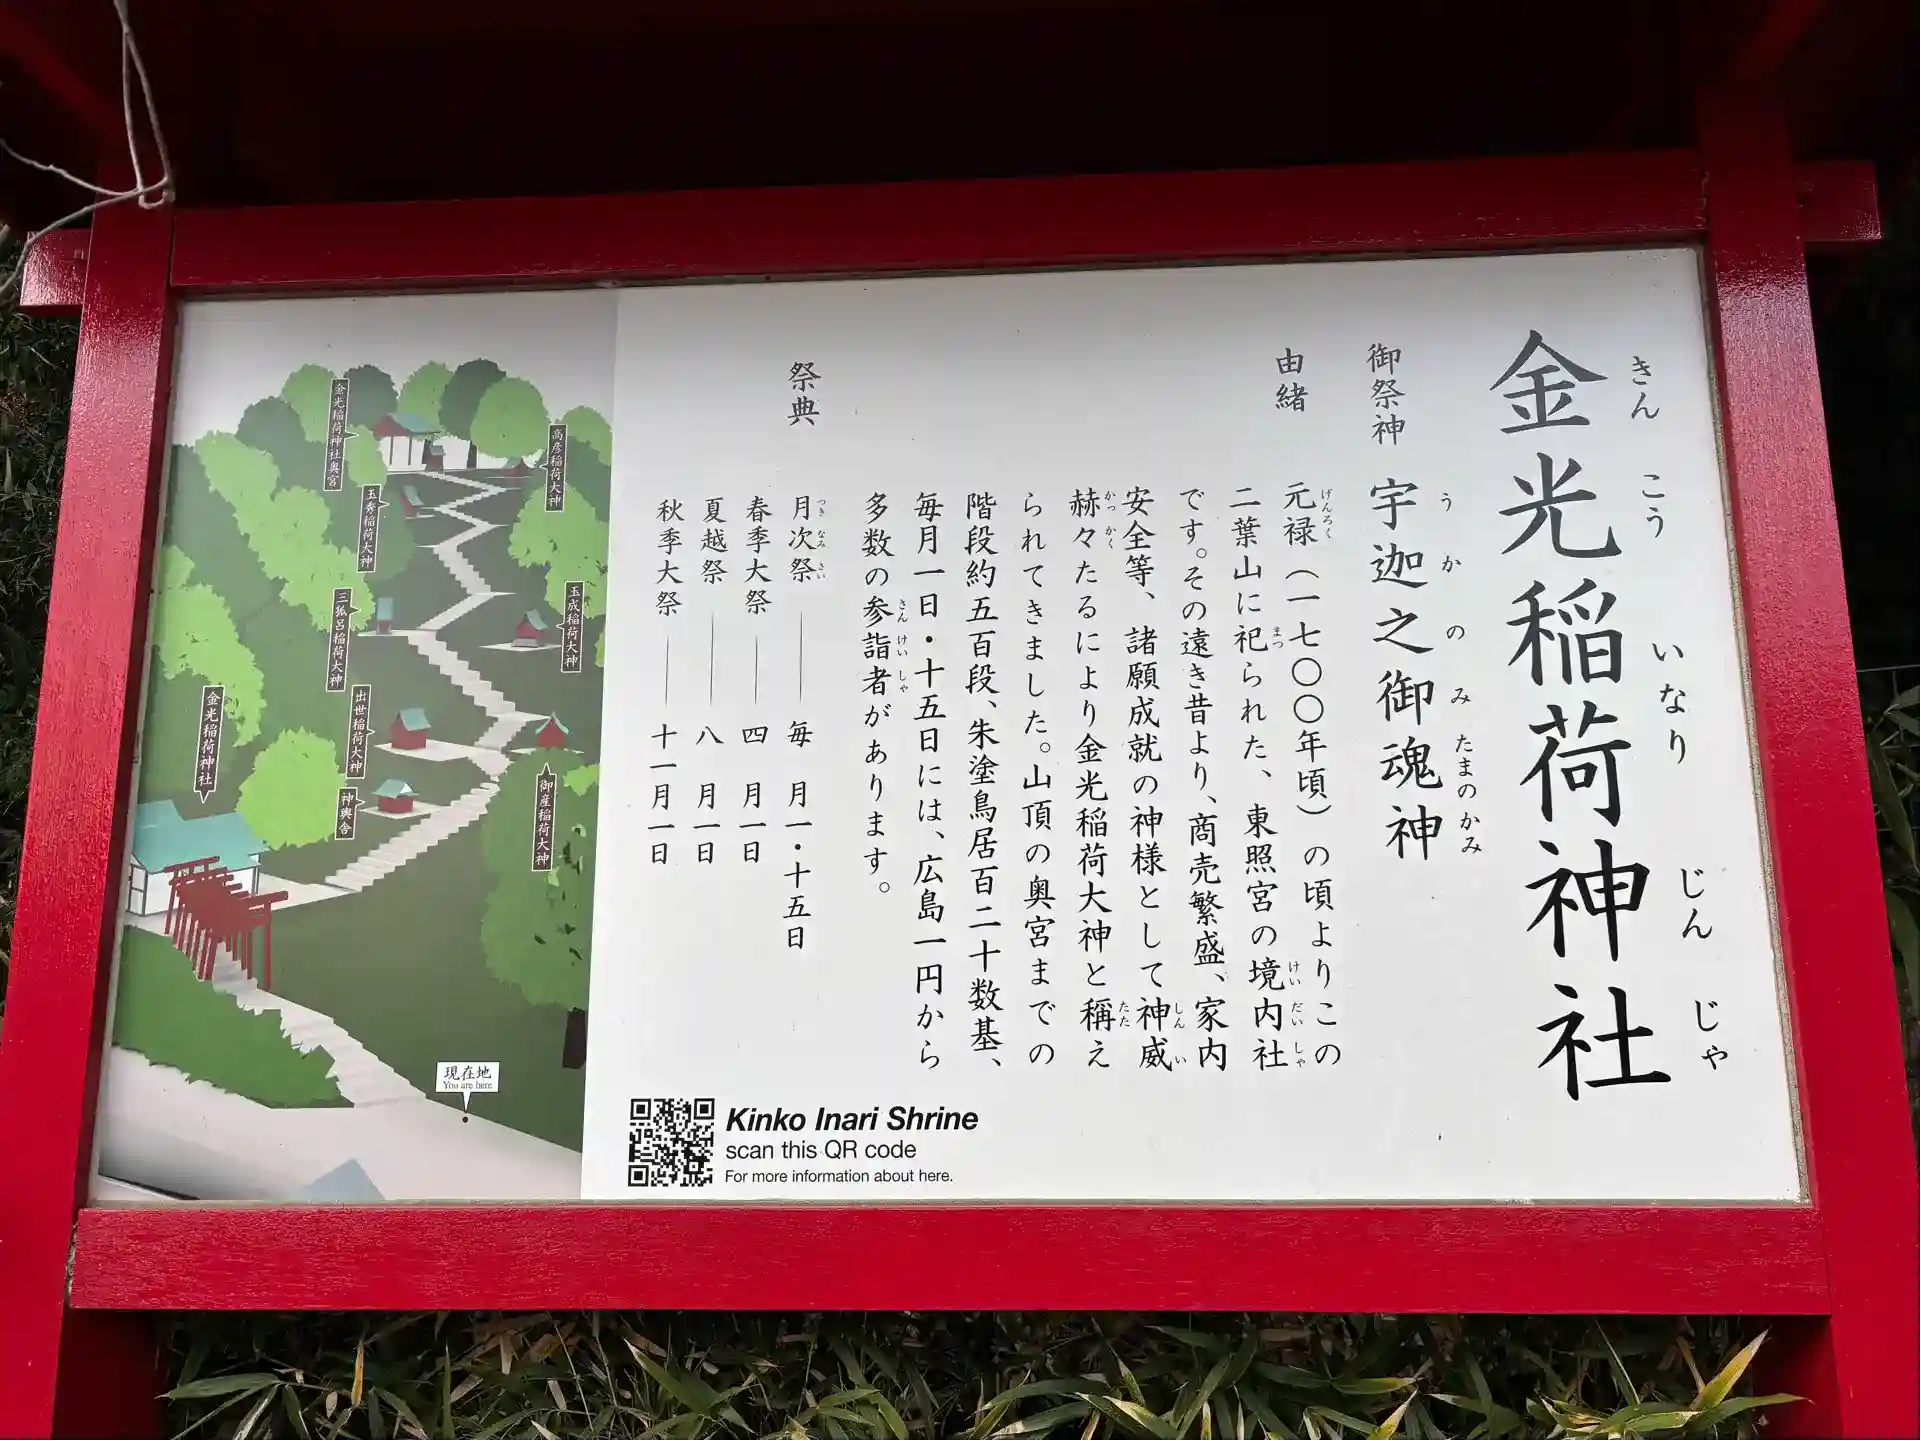 金光稲荷神社
きんこういなりじんじゃ
御祭神　宇迦之御魂神
うかのみたまのかみ
由緒
元禄（一七〇〇年頃）の頃よりこの
げんろく
二葉山に祀られた、東照宮の境内社
まつ　けいだいしゃ
です。その遠き昔より、商売繁盛、家内
安全等、諸願成就の神様として神威
しんい
赫々たるにより金光稲荷大神と稱え
かっかく　たた
られてきました。山頂の奥宮までの
階段約五百段、朱塗鳥居百二十数基、
毎月一日・十五日には、広島一円から
多数の参詣者があります。
さんけいしゃ
祭典
月次祭――毎　月一・十五日
つきなみさい
春季大祭――四　月一日
夏越祭――八　月一日
秋季大祭――十一月一日
金光稲荷神社奥宮
高彦稲荷大神
玉秀稲荷大神
玉成稲荷大神
三狐呂稲荷大神
出世稲荷大神
金光稲荷神社
神輿舎
御産稲荷大神
現在地
You are here
Kinko Inari Shrine
scan this QR code
For more information about here.